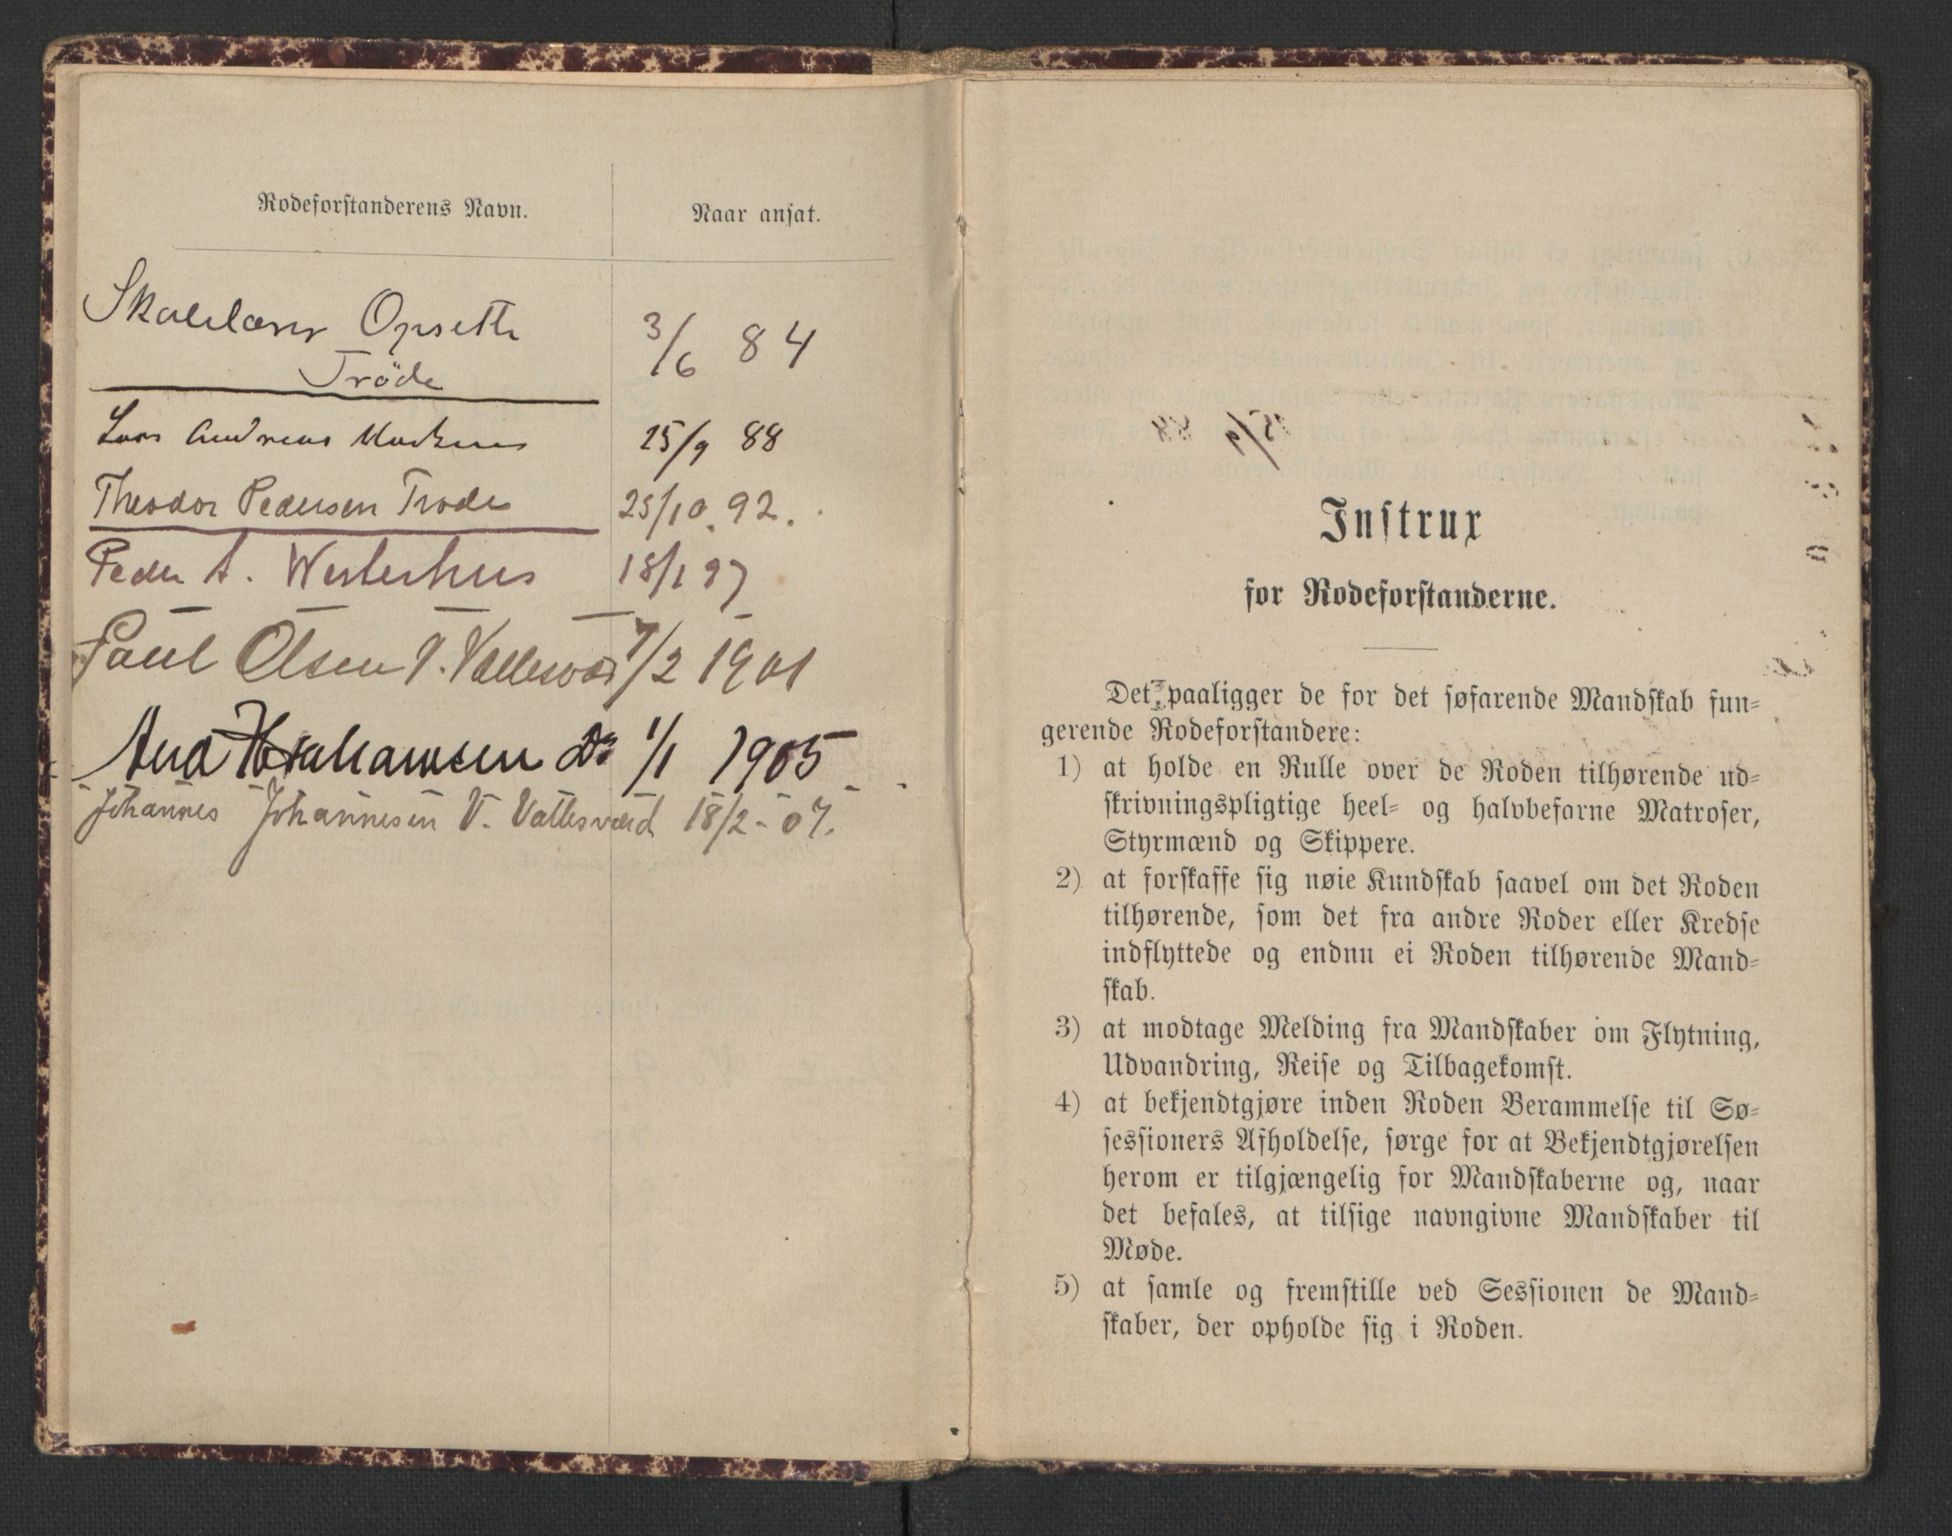 Rodeforstanderens Navn.
Naar ansat.
Skolelærer Opseth
Tröde
3/6 84
Lars Andreas
25/9 88
Theodor Pedersen Trode
25/10. 92.
Peder A. Westerhus
18/1 97
Paul Olsen V. Vallesvær
7/2 1901
And Abrahamsen Do
1/1 1905
Johannes Johannesen V. Vattesværd 18/2 - 07.
Instrux
for Rodeforstanderne.
Det paaligger de for det søfarende Mandskab fun-
gerende Rodeforstandere:
1) at holde en Rulle over de Roden tilhørende ud-
skrivningspligtige heel- og halvbefarne Matroser,
Styrmænd og Skippere.
2) at forskaffe sig nøie Kundskab saavel om det Roden
tilhørende, som det fra andre Roder eller Kredse
indflyttede og endnu ei Roden tilhørende Mand-
skab.
3) at modtage Melding fra Mandskaber om Flytning,
Udvandring, Reise og Tilbagekomst.
4) at bekjendtgjøre inden Roden Berammelse til Sø-
sessioners Afholdelse, sørge for at Bekjendtgjørelsen
herom er tilgjængelig for Mandskaberne og, naar
det befales, at tilsige navngivne Mandskaber til
Møde.
5) at samle og fremstille ved Sessionen de Mand-
skaber, der opholde sig i Roden.